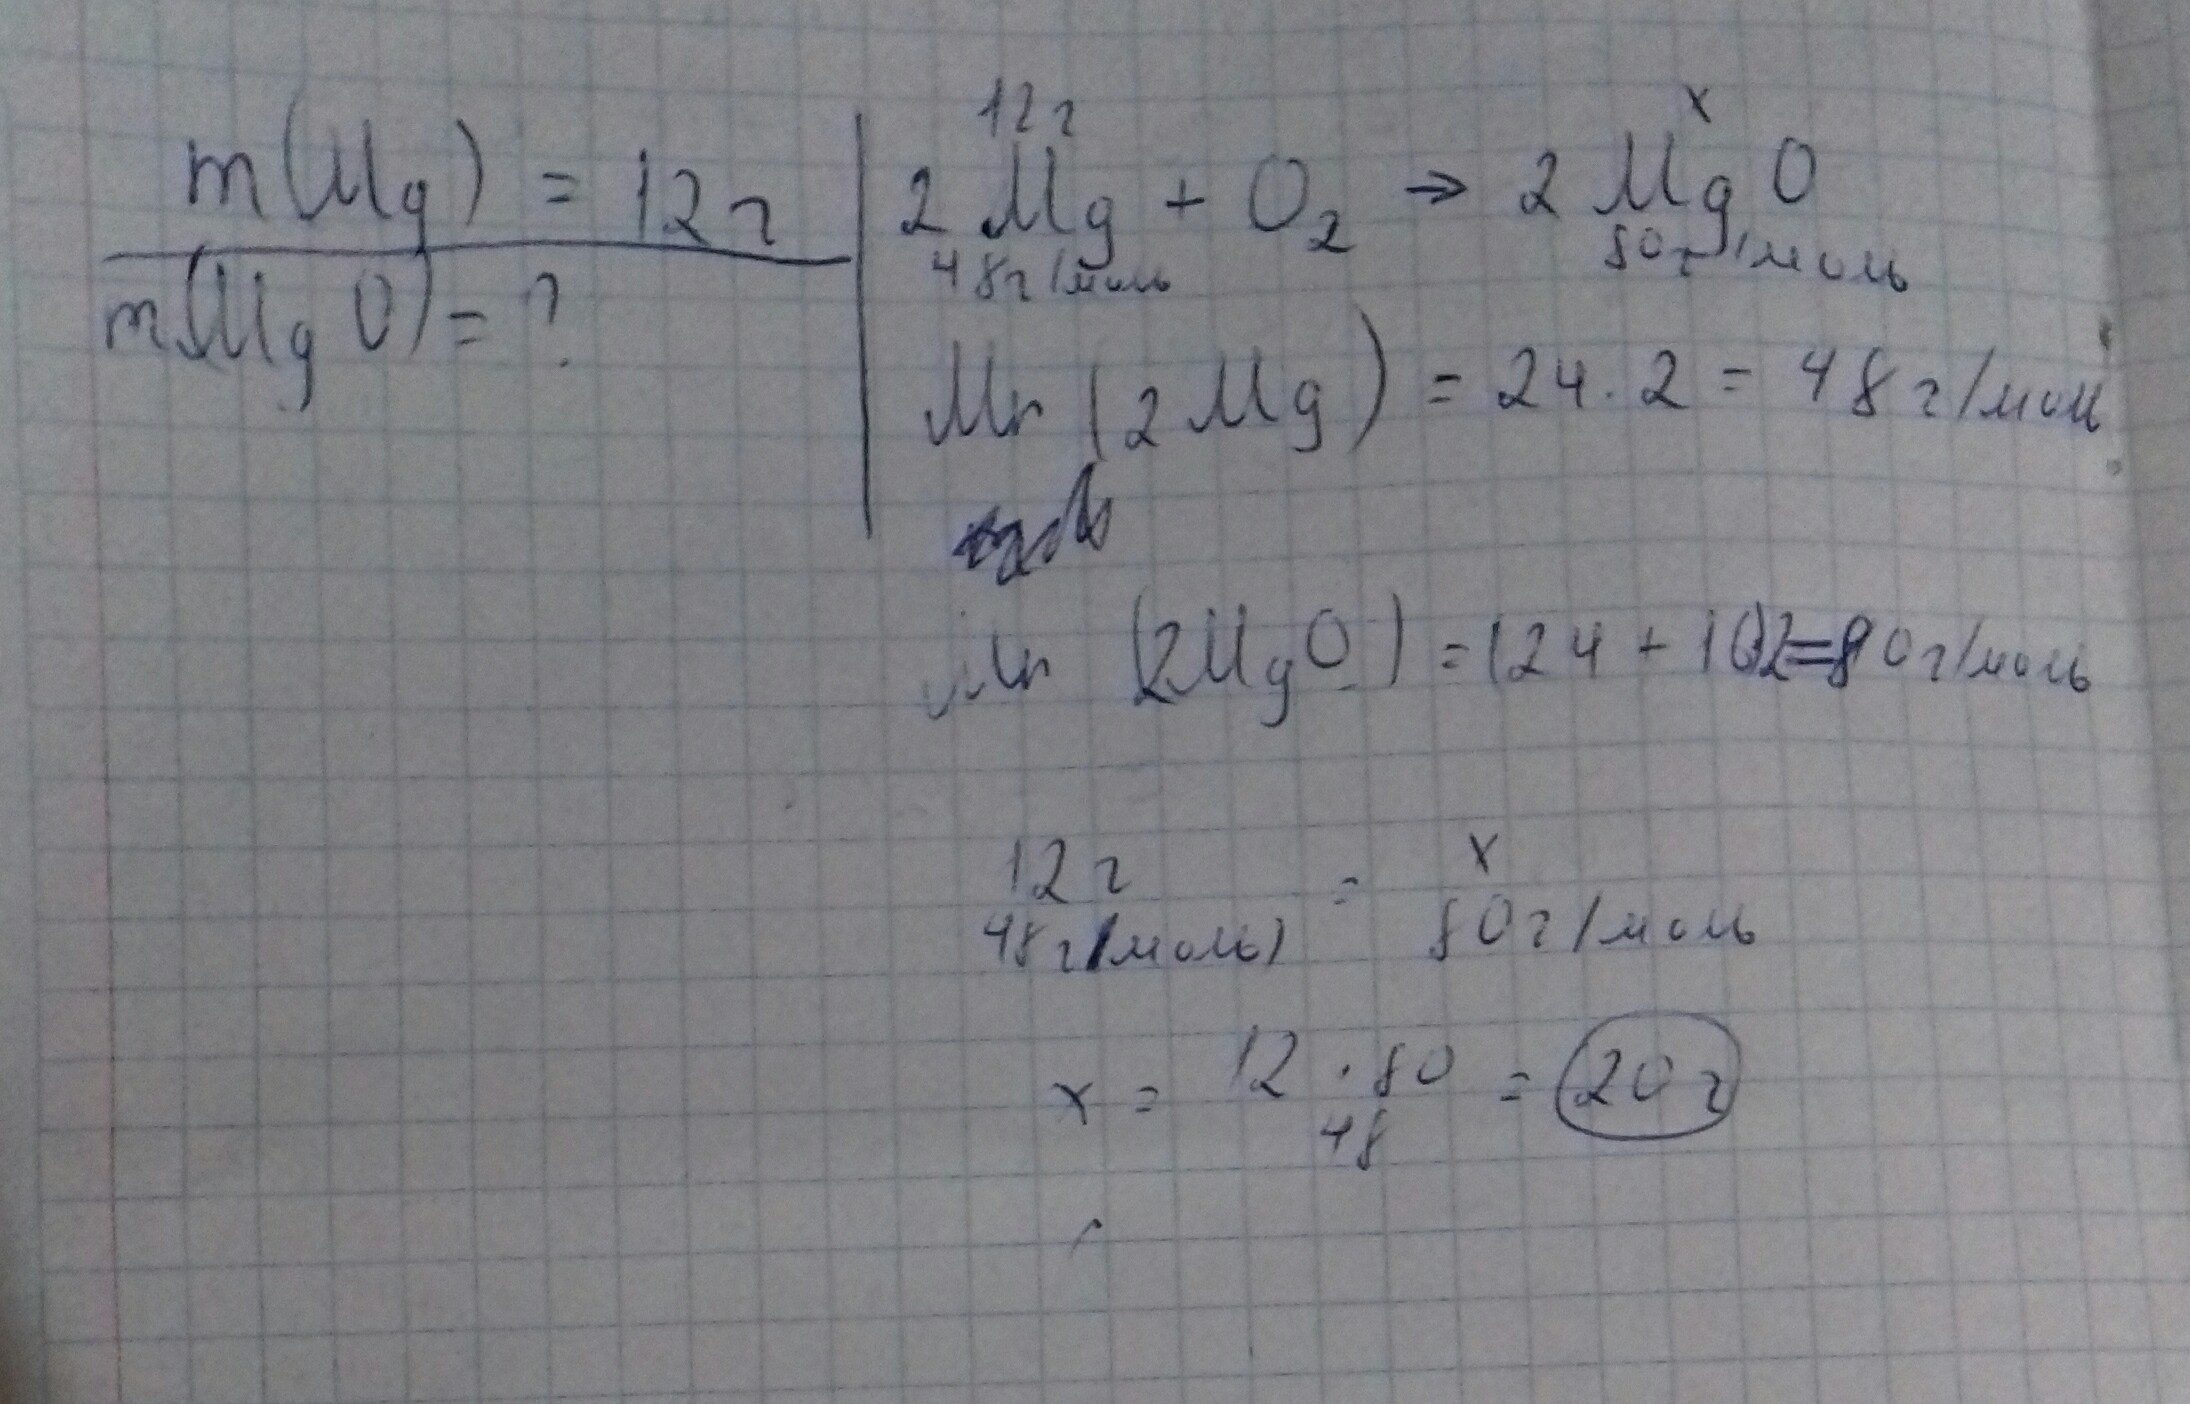 m(Mg) = 12г
m(MgO) = ?
12г x
2Mg + O₂ → 2MgO
48г/моль 80г/моль
Mr (2Mg) = 24·2 = 48г/моль
Mr (2MgO) = (24+16)2=80г/моль
12г = x
48г/моль) 80г/моль
x = 12·80 = 20г
48